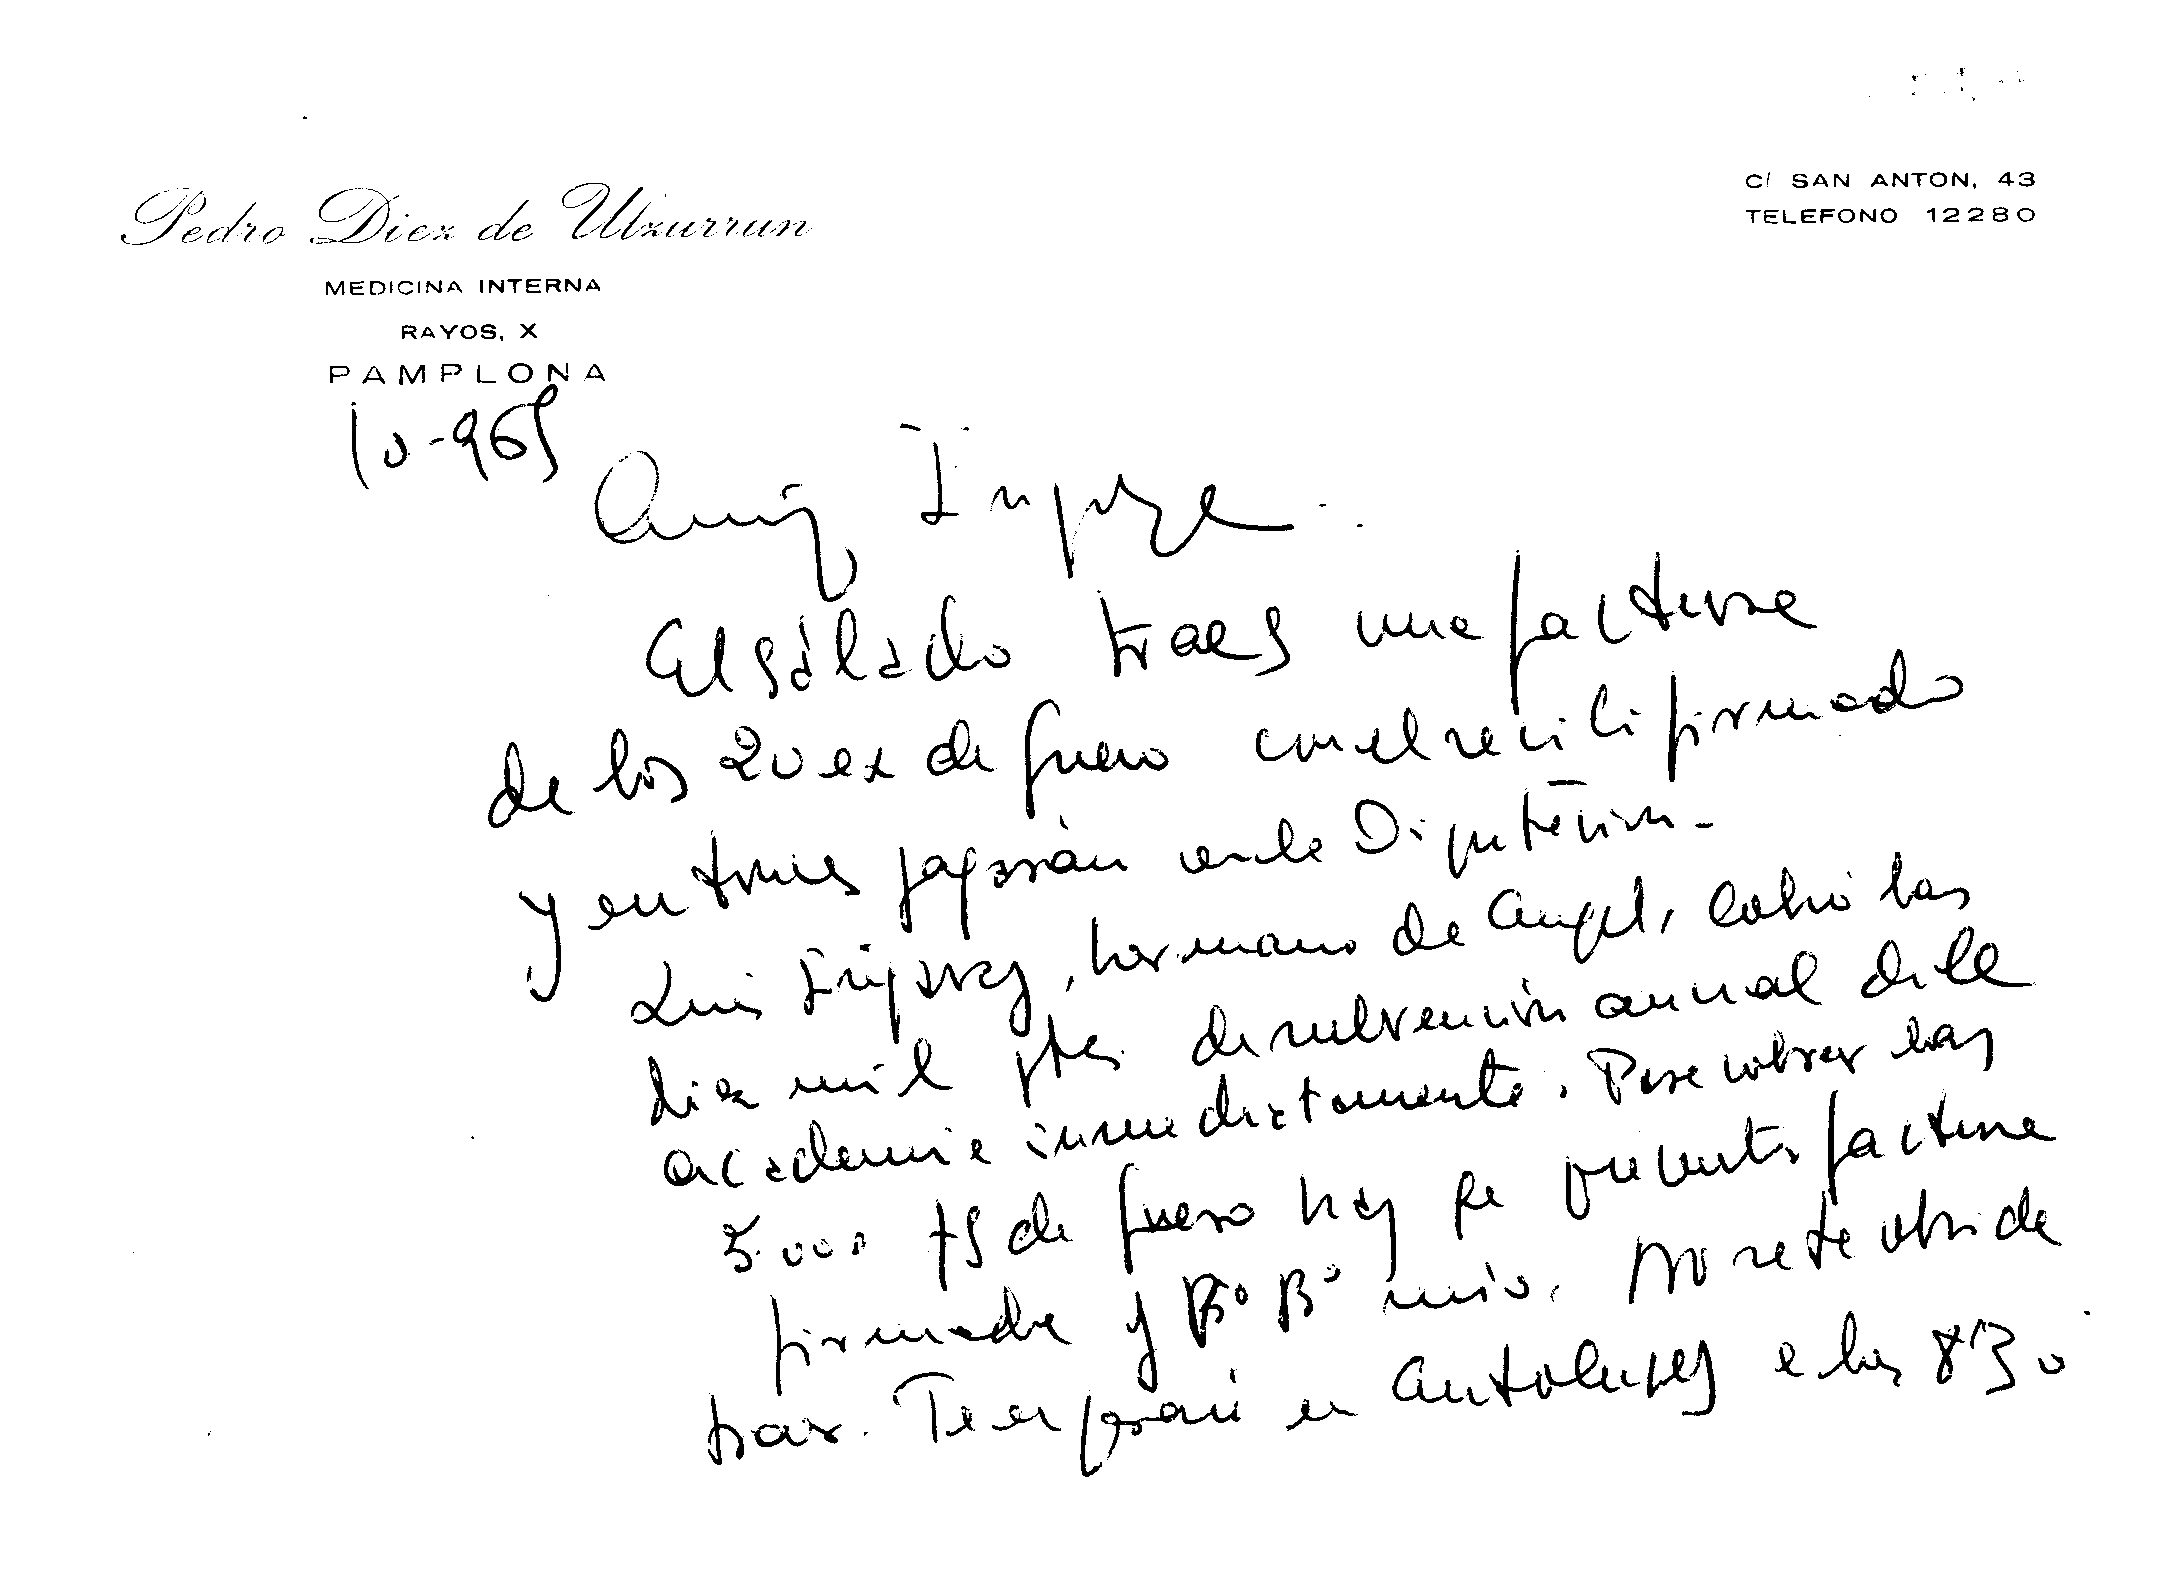 Pedro Diez de Ulzurrun
MEDICINA INTERNA
RAYOS, X
PAMPLONA
C/ SAN ANTON, 43
TELEFONO 12280
10-965
Amigo
El sábado traes una factura
de los 20 ex de fuero con el recibi firmado
y entonces pagarán en la Diputación.
Luis , hermano de Angel, cobró las
diez mil ptas de subvención anual de la
academia inmediatamente. Para cobrar las
5.000 pts de fuero hay qe presentar factura
firmada y Vº Bº mio. No se te olvide
traer. Te esperaré en a las 8'30